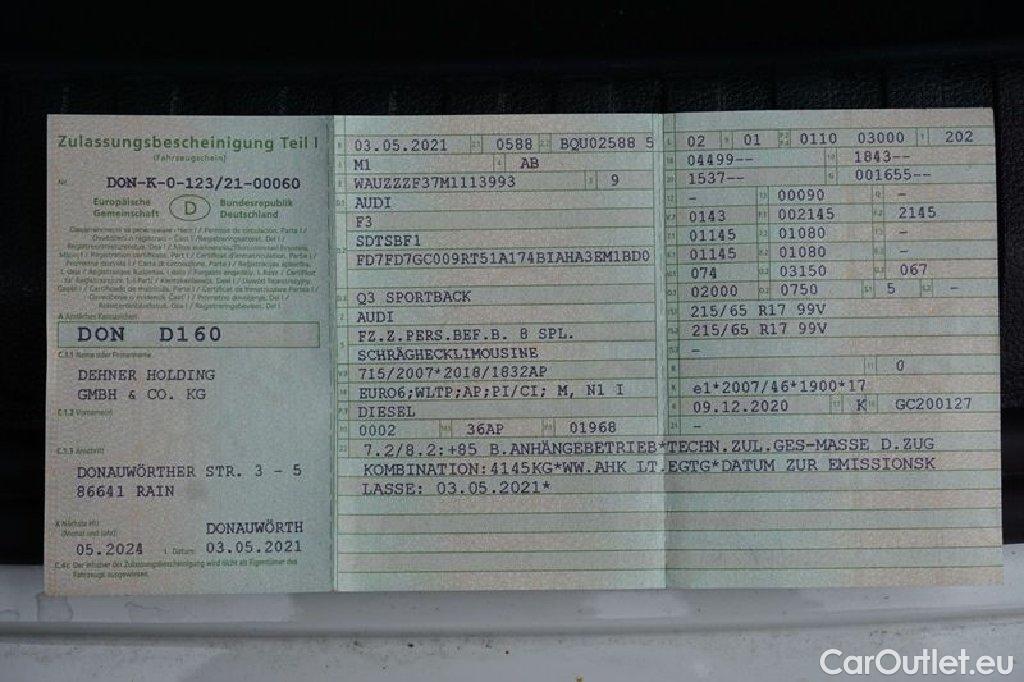 Zulassungsbescheinigung Teil I
(Fahrzeugschein)
Nr. DON-K-0-123/21-00060
Europäische Gemeinschaft
D
Bundesrepublik Deutschland
A Amtliches Kennzeichen
DON D160
C.1.1 Name oder Firmenname
DEHNER HOLDING
GMBH & CO. KG
C.1.2 Vorname(n)
C.1.3 Anschrift
DONAUWÖRTHER STR. 3 - 5
86641 RAIN
Nächste HU
(Monat und Jahr)
DONAUWÖRTH
05.2024 I Datum: 03.05.2021
C.4c Der Inhaber der Zulassungsbescheinigung wird nicht als Eigentümer des
Fahrzeugs ausgewiesen.
03.05.2021 0588 BQU02588 5
M1 AB
WAUZZZF37M1113993 9
AUDI
F3
SDTSBF1
FD7FD7GC009RT51A174BIAHA3EM1BD0
Q3 SPORTBACK
AUDI
FZ.Z.PERS.BEF.B. 8 SPL.
SCHRÄGHECKLIMOUSINE
715/2007*2018/1832AP
EURO6;WLTP;AP;PI/CI; M, N1 I
DIESEL
0002 36AP 01968
02 01 0110 03000 202
04499-- 1843--
1537-- 001655--
- 00090 -
0143 002145 2145
01145 01080 -
01145 01080 -
074 03150 067
02000 0750 5 -
215/65 R17 99V
215/65 R17 99V
-
0
e1*2007/46*1900*17
09.12.2020 K GC200127
-
7.2/8.2:+85 B.ANHÄNGEBETRIEB*TECHN.ZUL.GES-MASSE D.ZUG
KOMBINATION:4145KG*WW.AHK LT.EGTG*DATUM ZUR EMISSIONSK
LASSE: 03.05.2021*
CarOutlet.eu